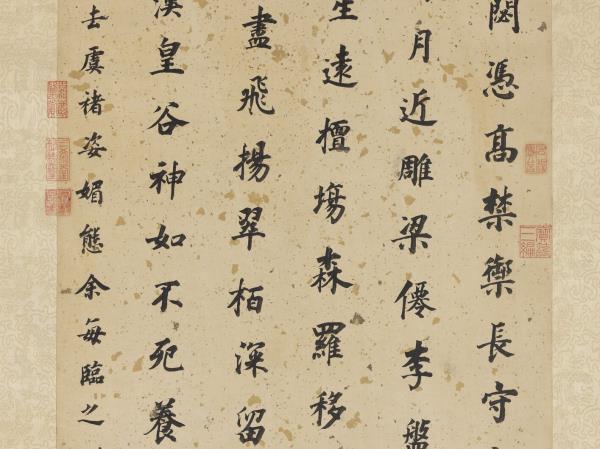 閟憑髙禁禦長守
月近雕梁僊李盤
生遠擅塲森羅移
盡飛揚翠栢深留
漢皇谷神如不死養
去虞褚姿媚態余每臨之